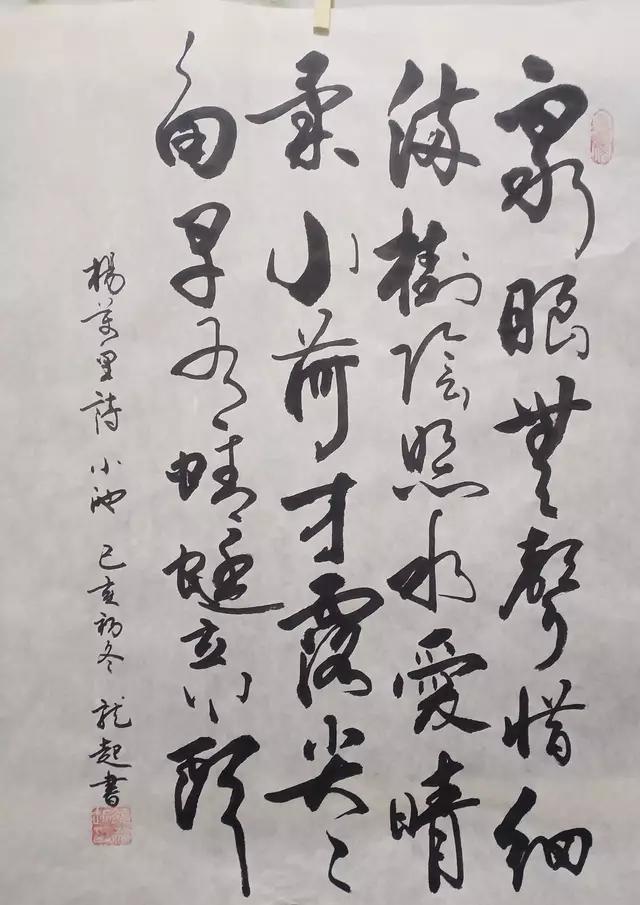 泉眼無聲惜細
流樹陰照水愛晴
柔小荷才露尖々
角早有蜻蜓立上頭
楊萬里詩 小池 己亥初冬 龍起書